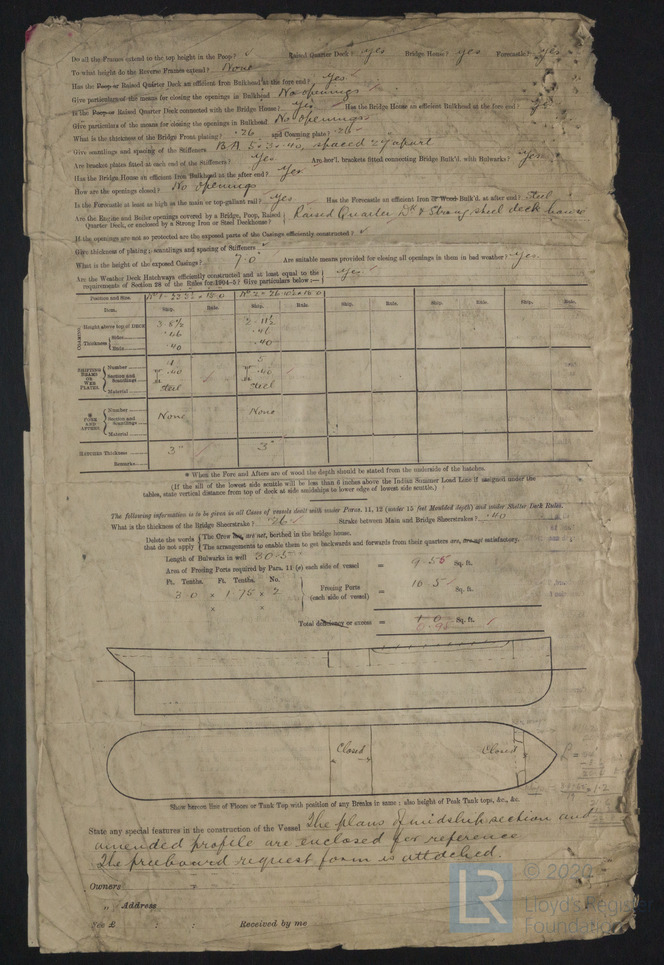 Do all the Frames extend to the top height in the Poop? ✓ Raised Quarter Deck? yes Bridge House? yes Forecastle? yes
To what height do the Reverse Frames extend? None
Has the Poop or Raised Quarter Deck an efficient Iron Bulkhead at the fore end? Yes
Give particulars of the means for closing the openings in Bulkhead No openings
Is the Poop or Raised Quarter Deck connected with the Bridge House? Yes Has the Bridge House an efficient Bulkhead at the fore end? yes
Give particulars of the means for closing the openings in Bulkhead No openings
What is the thickness of the Bridge Front plating? .26 and Coaming plate? .26
Give scantlings and spacing of the Stiffeners B.A. 5 x 3 x .40, spaced 27 apart
Are bracket plates fitted at each end of the Stiffeners? Yes Are hor'l. brackets fitted connecting Bridge Bulk'd. with Bulwarks? Yes
Has the Bridge House an efficient Iron Bulkhead at the after end? Yes
How are the openings closed? No openings
Is the Forecastle at least as high as the main or top-gallant rail? yes Has the Forecastle an efficient Iron or Wood Bulk'd. at after end? Steel
Are the Engine and Boiler openings covered by a Bridge, Poop, Raised Quarter Dk & Strong steel deck house
Quarter Deck, or enclosed by a Strong Iron or Steel Deckhouse?
If the openings are not so protected are the exposed parts of the Casings efficiently constructed? ✓
Give thickness of plating; scantlings and spacing of Stiffeners ✓
What is the height of the exposed Casings? 7.0 Are suitable means provided for closing all openings in them in bad weather? Yes
Are the Weather Deck Hatchways efficiently constructed and at least equal to the
requirements of Section 28 of the Rules for 1904-5? Give particulars below:— Yes
Position and Size.
Item. Ship. Rule. Ship. Rule. Ship. Rule. Ship. Rule. Ship. Rule.
COAMING Height above top of DECK 3-5½ 2-11½
Thickness Sides .46 .46
Ends .40 .40
SHIFTING BEAMS OR WEB PLATES Number
Section and Scantlings .40 .40
Material Steel Steel
* FORE AND AFTERS Number None None
Section and Scantlings
Material
HATCHES Thickness 3" 3"
Remarks
* When the Fore and Afters are of wood the depth should be stated from the underside of the hatches.
(If the sill of the lowest side scuttle will be less than 6 inches above the Indian Summer Load Line if assigned under the
tables, state vertical distance from top of deck at side amidships to lower edge of lowest side scuttle.)
The following information is to be given in all Cases of vessels dealt with under Paras. 11, 12 (under 15 feet Moulded depth) and under Shelter Deck Rules.
What is the thickness of the Bridge Sheerstrake? .26 Strake between Main and Bridge Sheerstrakes? .40
Delete the words The Crew are, are not, berthed in the bridge house.
that do not apply The arrangements to enable them to get backwards and forwards from their quarters are, are not satisfactory.
Length of Bulwarks in well 30.5
Area of Freeing Ports required by Para. 11 (e) each side of vessel = 9.55 Sq. ft.
Ft. Tenths. Ft. Tenths. No.
3 0 x 1.75 x 2 Freeing Ports (each side of vessel) = 10.5 Sq. ft.
x x
Total deficiency or excess = 1 0 0.95 Sq. ft.
Closed Closed
Show hereon line of Floors or Tank Top with position of any Breaks in same; also height of Peak Tank tops, &c., &c.
State any special features in the construction of the Vessel The plans of midship section and
amended profile are enclosed for reference
The freeboard request form is attached.
Owners
„ Address
Fee £ : : Received by me
LR
© 202
Lloyd's Register
Foundation